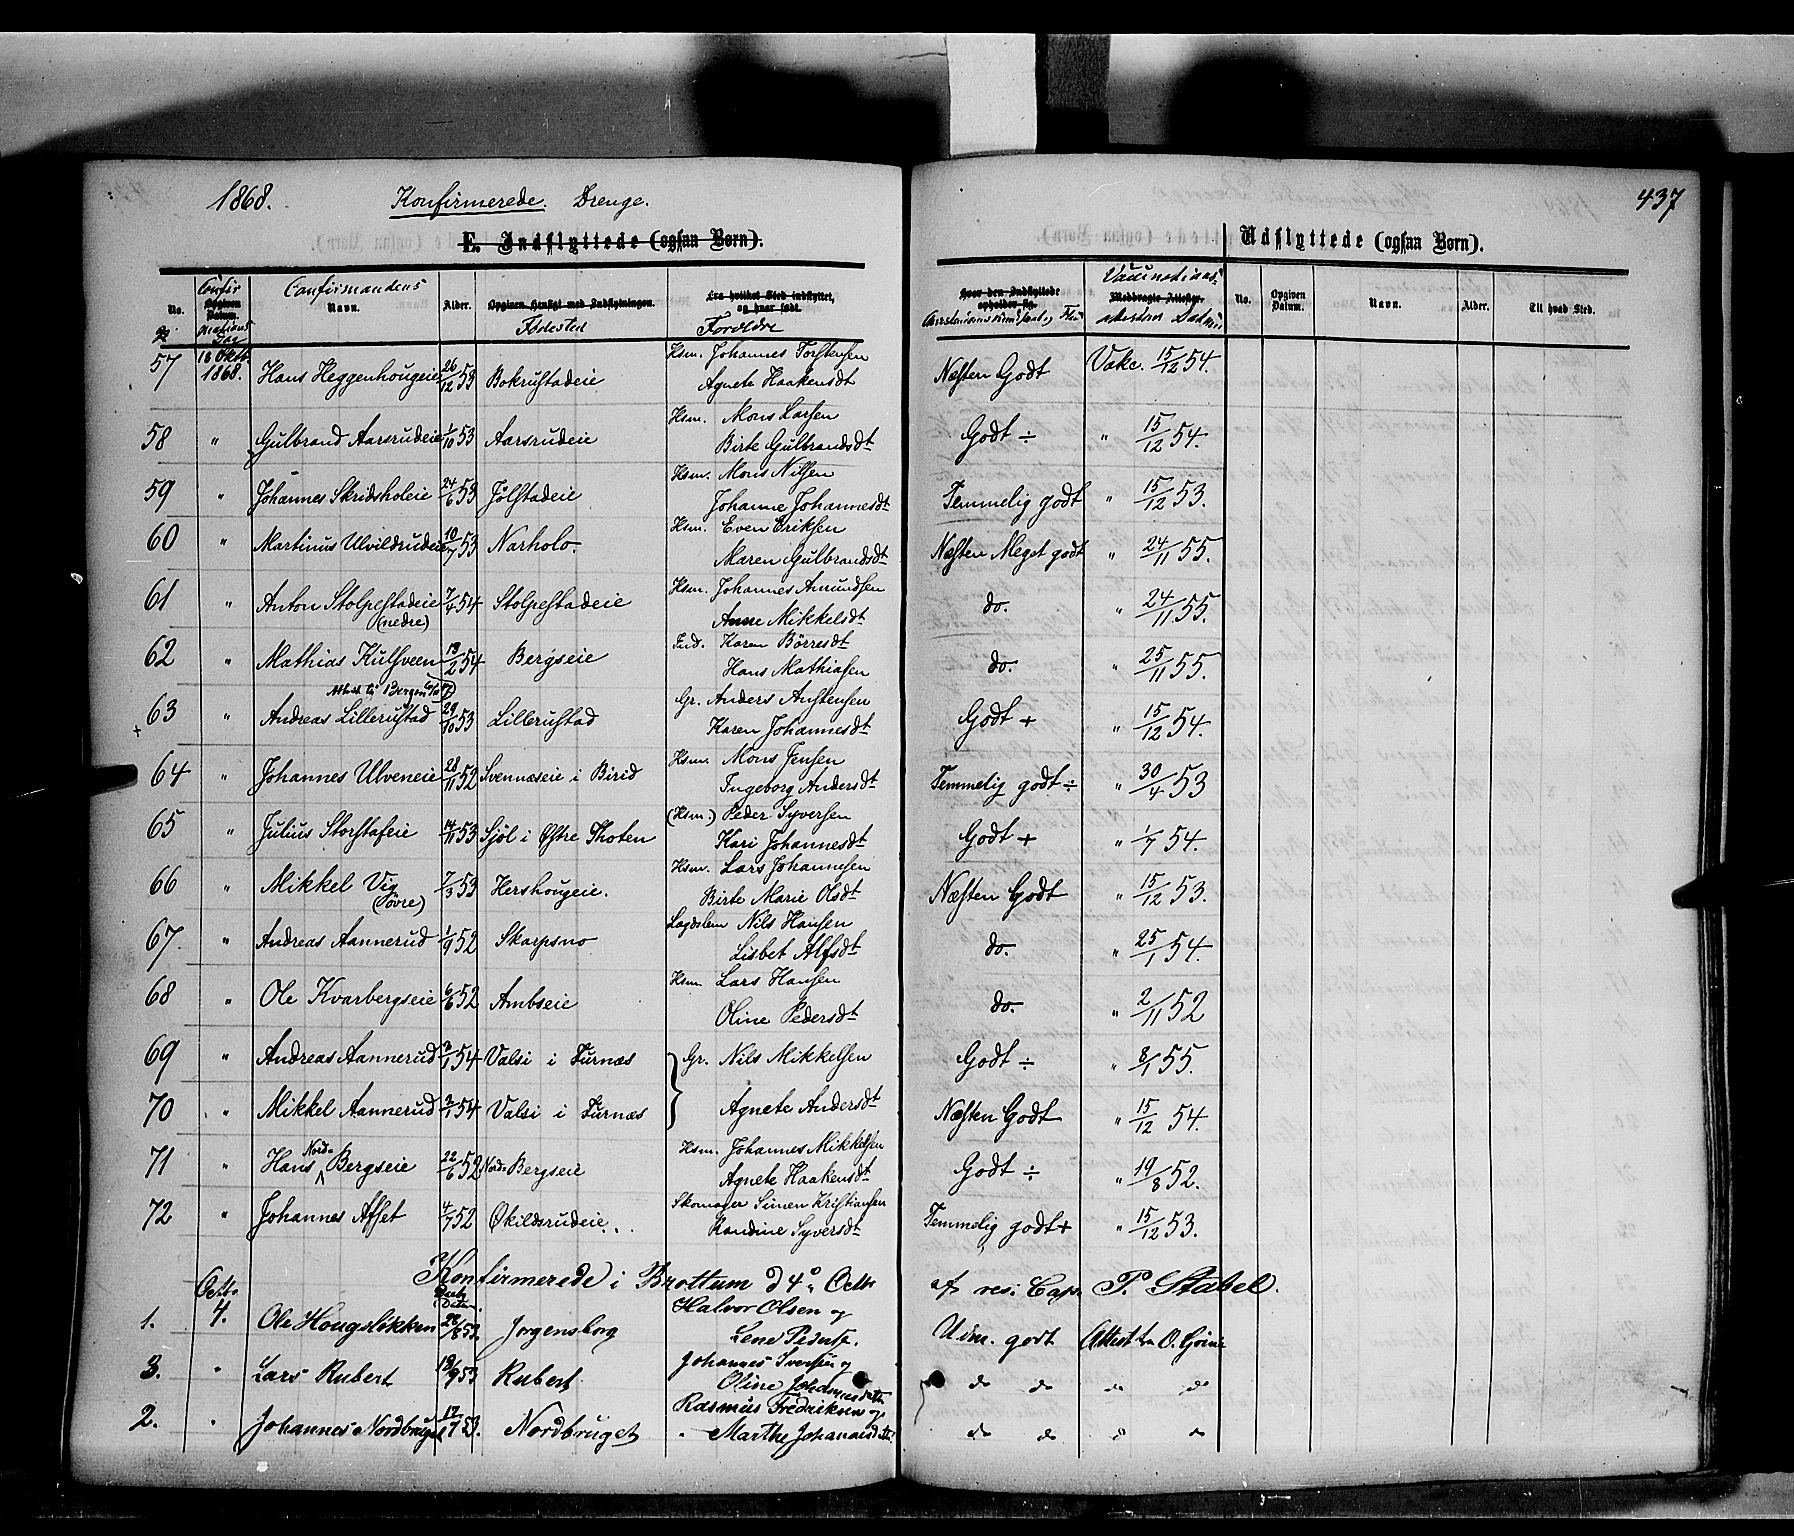 1868. Konfirmerede. Drenge. 437
E. Indflyttede (ogsaa Børn). Udflyttede (ogsaa Børn).
No. Confirmations Dag Opgiven Datum. Confirmandens Navn. Alder. Opgiven Hensigt med Indflytningen. Fødested Fra hvilket Sted indflyttet, og hvor født. Forældre Hvor den Indflyttede opholder sig. Medbragte Attester. No. Opgiven Datum. Navn. Alder. Til hvad Sted.
57 18 Oktb. 1868. Hans Heggenhougeie 26/12 53 Bokrustadeie Hsm. Johannes Torstensen Næsten Godt Vakc. 15/12 54.
Agnete Haakensdt
58 " Gulbrand Aarsrudeie 1/10 53 Aarsrudeie Hsm. Mons Larsen Godt ÷ " 15/12 54.
Birte Gulbrandsdt
59 " Johannes Skridsholeie 24/6 53 Jølstadeie Hsm. Mons Nilsen Temmelig godt " 15/12 53.
Johanne Johannesdt
60 " Martinus Ulvildrudeie 10/7 53 Narholo. Hsm. Even Eriksen Næsten Meget godt " 24/11 55.
Maren Gulbrandsdt
61 " Anton Stolpestadeie (nedre) 7/4 54 Stolpestadeie Hsm. Johannes Amundsen do. " 24/11 55.
Anne Mikkelsdt
62 " Mathias Kulsveen 13/2 54 Bergseie Ind. Karen Børresdt do. " 25/11 55.
Hans Mathiasen
63 " Andreas Lillerustad 29/10 53 Lillerustad Gr. Anders Anstensen Godt + " 15/12 54.
+ Karen Johannesdt
64 " Johannes Ulveneie 28/11 52 Svennæseie i Birid Hsm. Mons Jensen Temmelig godt ÷ " 30/4 53
Ingeborg Andersdt
65 " Julius Storstafeie 14/11 53 Sjøl i Østre Thoten (Hsm.) Peder Syversen Godt + " 1/7 54.
Kari Johannesdt
66 " Mikkel Vig (øvre) 7/3 53 Hershougeie. Hsm. Lars Johannesen Næsten Godt " 15/12 53.
Birte Marie Olsdt
67. " Andreas Aannerud 1/9 52 Skarpsno Lægdslem Nils Hansen do. " 25/1 54.
Lisbet Alfsdt
68 " Ole Kvarbergseie 6/6 52 Ambseie Hsm Lars Hansen do. " 2/11 52
Oline Pedersdt
69 " Andreas Aannerud 2/1 54 Valsi i Furnæs Gr. Nils Mikkelsen Godt ÷ " 8/1 55.
70 " Mikkel Aannerud 2/1 54 Valsi i Furnæs Agnete Andersdt Næsten Godt " 15/12 54.
71 " Hans Nord- Bergseie 22/6 52 Nord- Bergseie Hsm. Johannes Mikkelsen Godt ÷ " 19/8 52.
Agnete Haakensdt
72 " Johannes Afset 4/7 52 Økildsrudeie. Skomager Simen Kristiansen Temmelig godt + " 15/12 53.
Randine Syversdt
Konfirmerede i Brøttum d 4de Octbr af res: Cap. P. Stabel.
1. Octbr 4. Ole Hougsløkken 28/8 53. Jørgensborg Halvor Olsen og Udm. godt Attest fra O.
Lene Pedersd.
3. " Lars Rubert 18/9 53 Rubert Johannes Iversen og do do do do
Oline Johannesdatter
2. " Johannes Nordbruget 17/7 53. Nordbruget Rasmus Fredriksen og do do do do
Marthe Johannesdatter